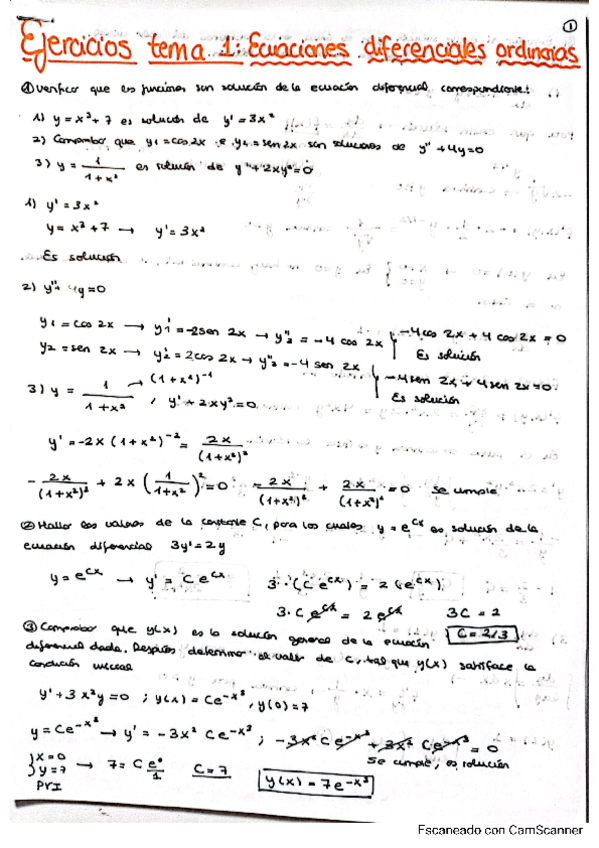 1
Ejercicios tema 1: Ecuaciones diferenciales ordinarias
① Verifico que las funciones son solución de la ecuación diferencial correspondiente:
1) y = x³ + 7 es solución de y' = 3x²
2) Comprobar que y₁ = cos 2x e y₂ = sen 2x son soluciones de y'' + 4y = 0
3) y = 1/(1+x²) es solución de y' + 2xy² = 0
1) y' = 3x²
y = x³ + 7 → y' = 3x²
Es solución
2) y'' + 4y = 0
y₁ = cos 2x → y₁' = -2sen 2x → y₁'' = -4 cos 2x { -4 cos 2x + 4 cos 2x = 0
Es solución
y₂ = sen 2x → y₂' = 2cos 2x → y₂'' = -4 sen 2x { -4 sen 2x + 4 sen 2x = 0
Es solución
3) y = 1/(1+x²) → (1+x²)⁻¹ , y' + 2xy² = 0
y' = -2x (1+x²)⁻² = 2x/(1+x²)²
- 2x/(1+x²)² + 2x (1/(1+x²))² = 0 - 2x/(1+x²)² + 2x/(1+x²)² = 0 se cumple
② Hallar los valores de la constante C, para los cuales y = e^(Cx) es solución de la
ecuación diferencial 3y' = 2y
y = e^(Cx) → y' = C e^(Cx) 3·(C e^(Cx)) = 2(e^(Cx))
3·C e^(Cx) = 2 e^(Cx) 3C = 2
C = 2/3
③ Comprobar que y(x) es la solución general de la ecuación
diferencial dada. Después determinar el valor de C, tal que y(x) satisface la
condición inicial
y' + 3x²y = 0 ; y(x) = Ce^(-x³), y(0) = 7
y = Ce^(-x³) → y' = -3x² Ce^(-x³) ; -3x² Ce^(-x³) + 3x² Ce^(-x³) = 0
Se cumple, es solución
{ x = 0
y = 7 → 7 = C e⁰ 1 C = 7 y(x) = 7e^(-x³)
PVI
Escaneado con CamScanner